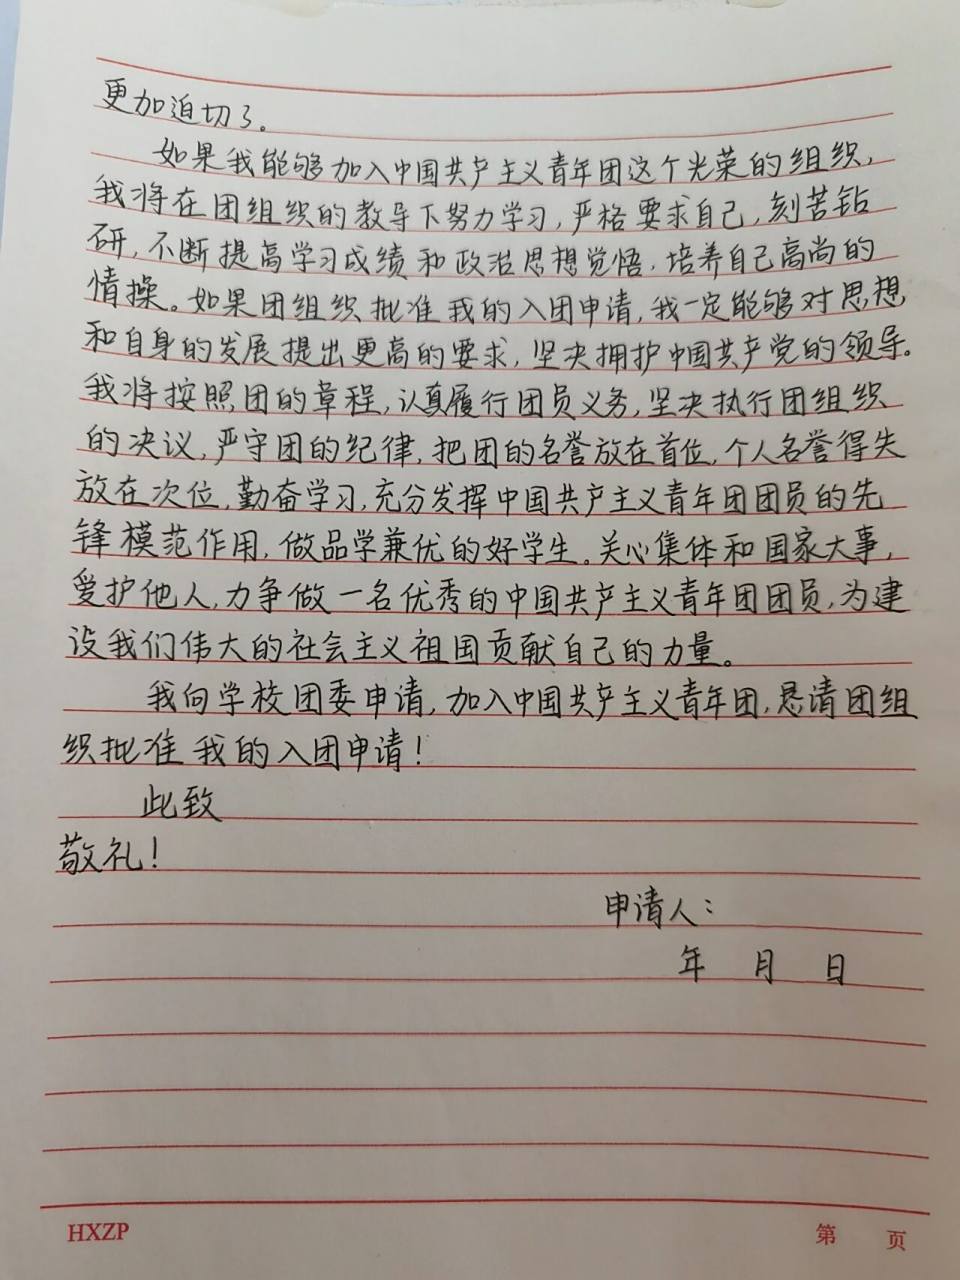 更加迫切了。
如果我能够加入中国共产主义青年团这个光荣的组织,
我将在团组织的教导下努力学习,严格要求自己,刻苦钻
研,不断提高学习成绩和政治思想觉悟,培养自己高尚的
情操。如果团组织批准我的入团申请,我一定能够对思想
和自身的发展提出更高的要求,坚决拥护中国共产党的领导。
我将按照团的章程,认真履行团员义务,坚决执行团组织
的决议,严守团的纪律,把团的名誉放在首位,个人名誉得失
放在次位,勤奋学习,充分发挥中国共产主义青年团团员的先
锋模范作用,做品学兼优的好学生。关心集体和国家大事,
爱护他人,力争做一名优秀的中国共产主义青年团团员,为建
设我们伟大的社会主义祖国贡献自己的力量。
我向学校团委申请,加入中国共产主义青年团,恳请团组
织批准我的入团申请!
此致
敬礼!
申请人:
年 月 日
HXZP 第 页